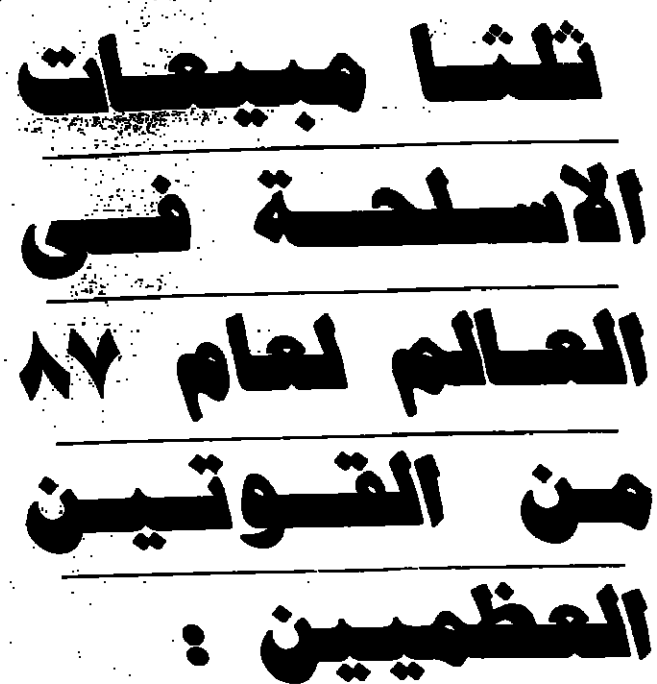 ثلثا مبيعات
الاسلحة فى
العالم لعام ٨٧
من القوتين
العظميين :